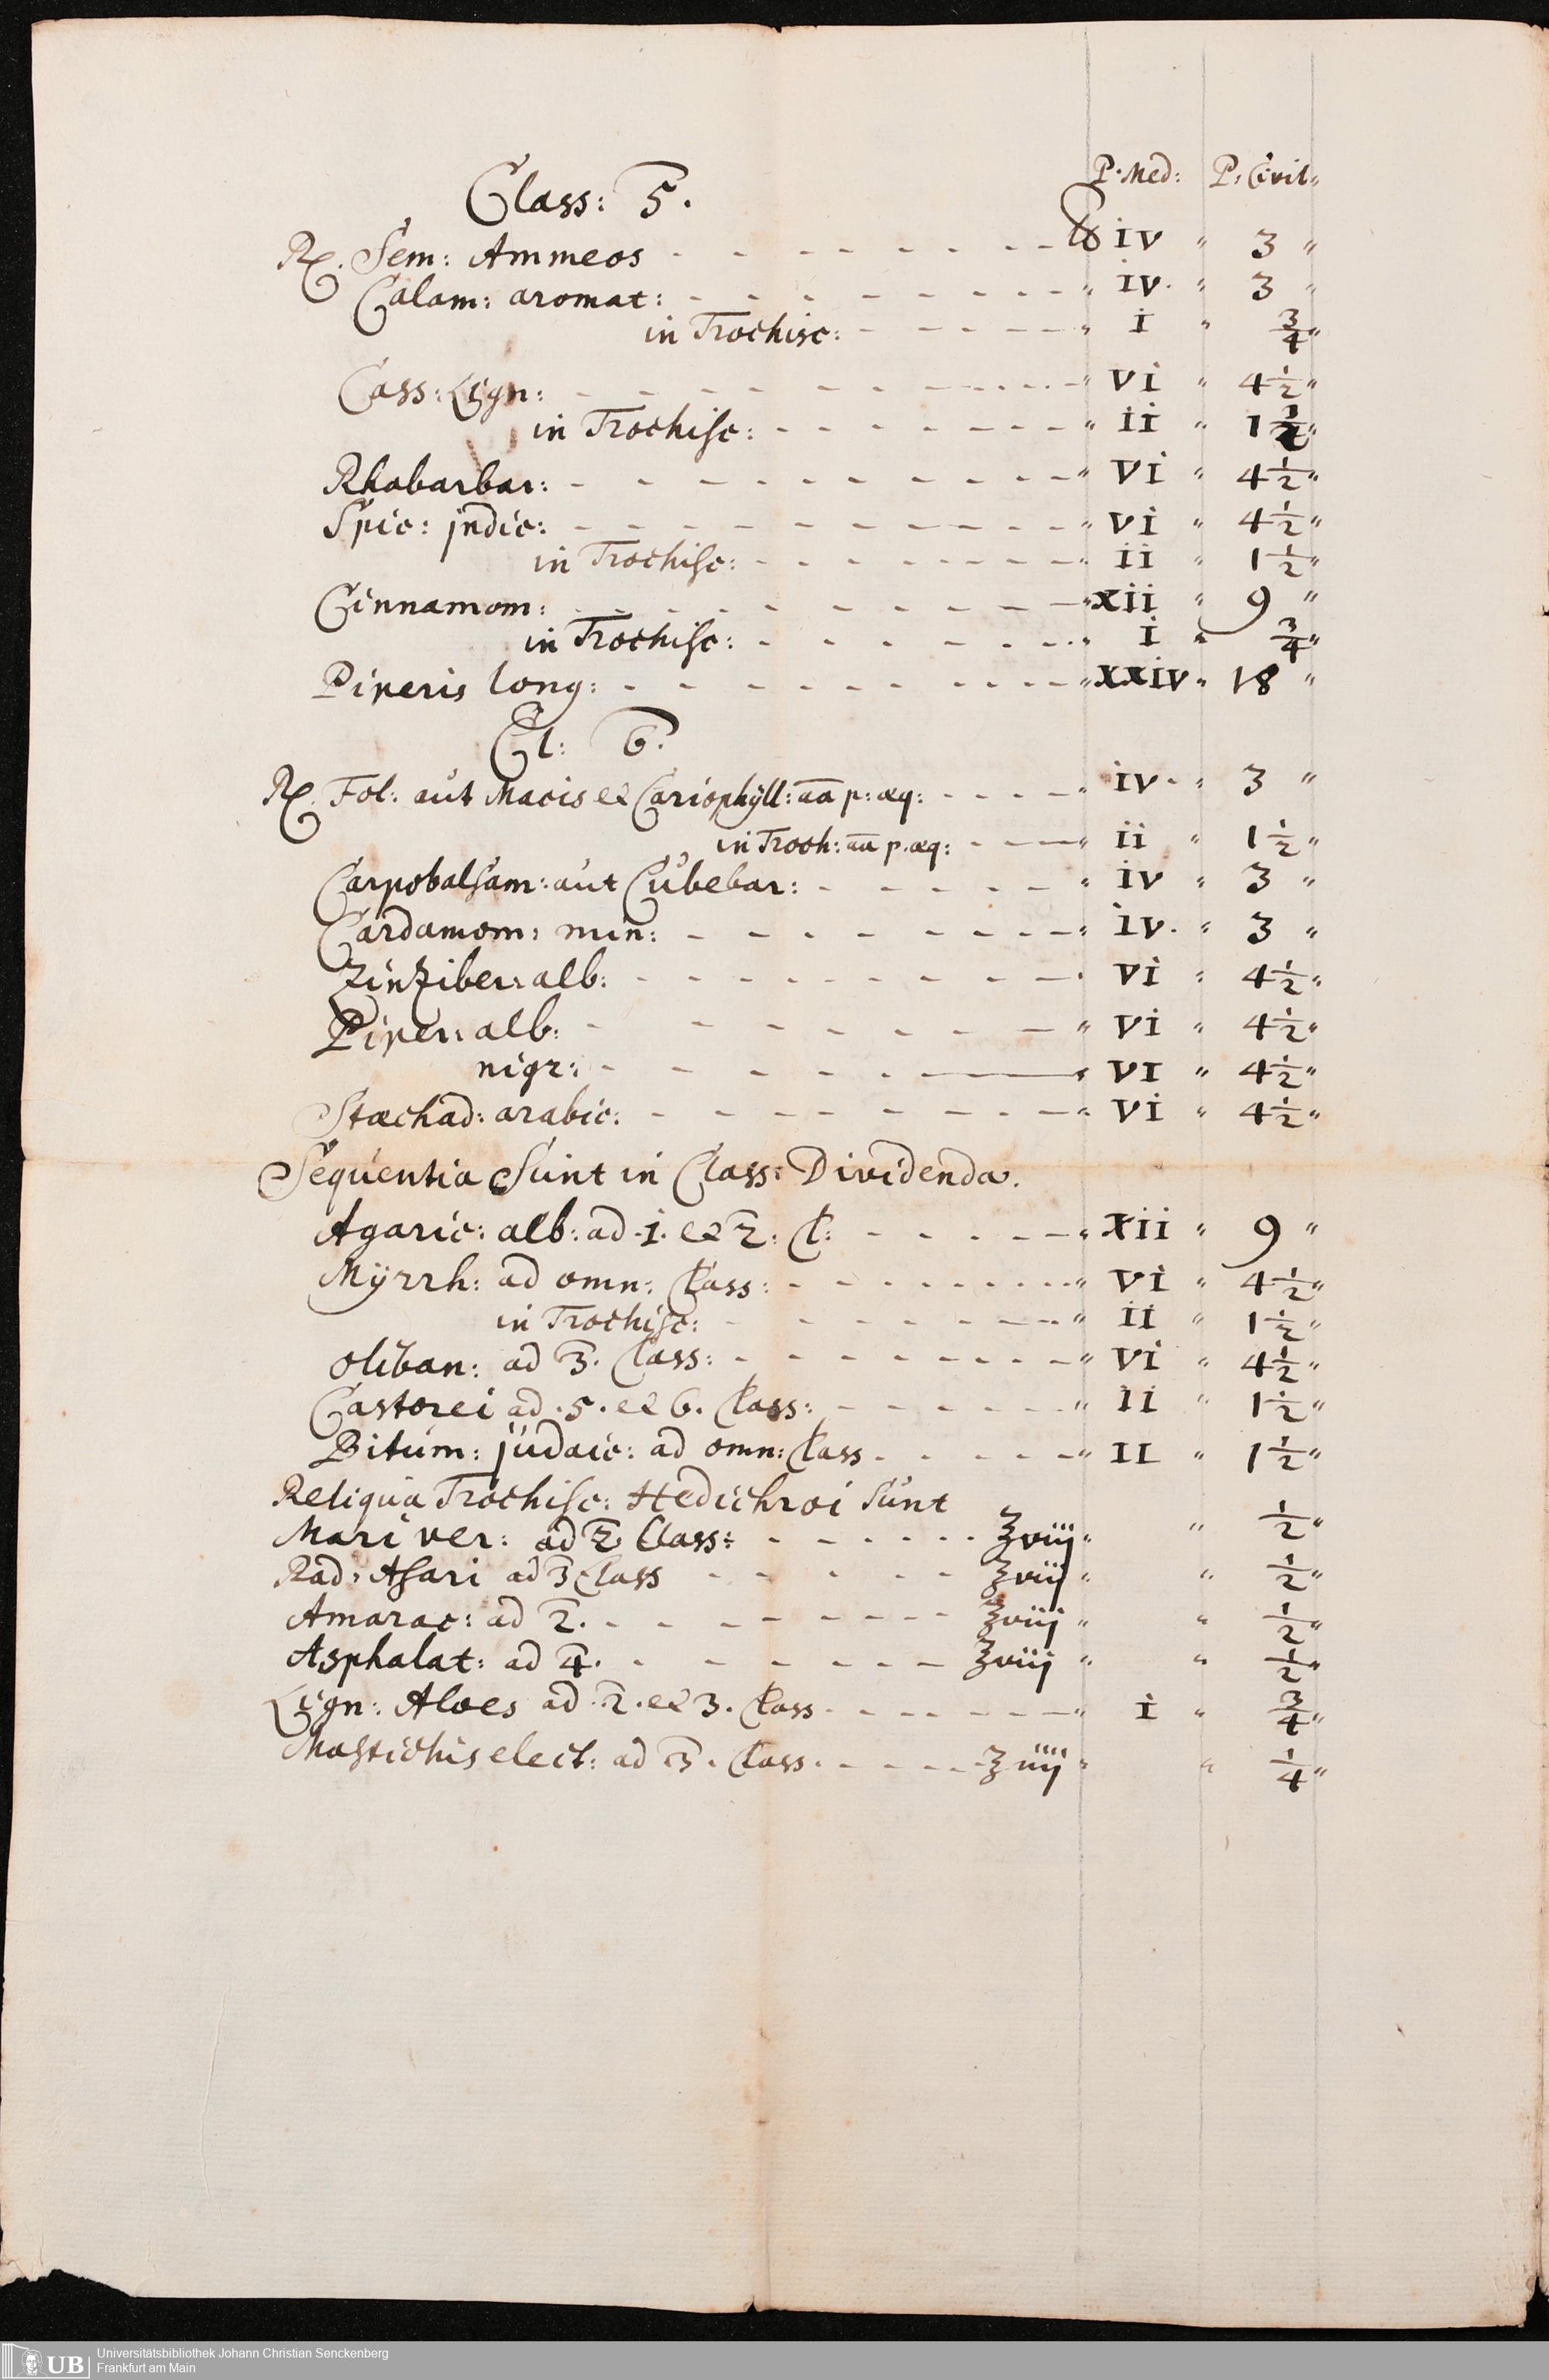 P. Med: P. Civil:
Class: 5.
℞. Sem: Ammeos - - - - - - - ℔ iv " 3 "
Calam: aromat: - - - - - - - - " iv. " 3 "
in Trochisc: - - - - - " i " 3/4 "
Cass: Lign: - - - - - - - - - " vi " 4 1/2 "
in Trochisc: - - - - - - - " ii " 1 1/2 "
Rhabarbar: - - - - - - - - - " vi " 4 1/2 "
Spic: jndic: - - - - - - - - - " vi " 4 1/2 "
in Trochisc: - - - - - - - " ii " 1 1/2 "
Cinnamom: - - - - - - - - - " xii " 9 "
in Trochisc: - - - - - - - " i " 3/4 "
Piperis long: - - - - - - - - - " xxiv " 18 "
Cl: 6.
℞. Fol: aut Macis et Cariophÿll: aa p: æq: - - - - " iv. " 3 "
in Troch: aa p. æq: - - - " ii " 1 1/2 "
Carpobalsam: aut Cubebar: - - - - - " iv " 3 "
Cardamom: min: - - - - - - - - " iv. " 3 "
Zinziber: alb: - - - - - - - - - " vi " 4 1/2 "
Piper: alb: - - - - - - - - " vi " 4 1/2 "
nigr: - - - - - - - " vi " 4 1/2 "
Stœchad: arabic: - - - - - - - - " vi " 4 1/2 "
Sequentia Sunt in Class: Dividenda.
Agaric: alb: ad .1. et 2. Cl: - - - - - " xii " 9 "
Mÿrrh: ad omn: Class: - - - - - - - " vi " 4 1/2 "
in Trochisc: - - - - - - - " ii " 1 1/2 "
Oliban: ad 3. Class: - - - - - - - - " vi " 4 1/2 "
Castorei ad .5. et 6. Class: - - - - - - " ii " 1 1/2 "
Bitum: judaic: ad omn: Class - - - - - " ii " 1 1/2 "
Reliqua Trochisc: Hedichroi sunt
Mari ver: ad 2 Class: - - - - - - ℥viij " " 1/2 "
Rad: Asari ad 3 Class - - - - - ℥viij " " 1/2 "
Amarac: ad 2. - - - - - - - ℥viij " " 1/2 "
Asphalat: ad 4. - - - - - - ℥viij " " 1/2 "
Lign: Aloes ad .2. et 3. Class - - - - - - " i " 3/4 "
Mastichis elect: ad 3. Class. - - - - ℥iiij " " 1/4 "
UB Universitätsbibliothek Johann Christian Senckenberg
Frankfurt am Main